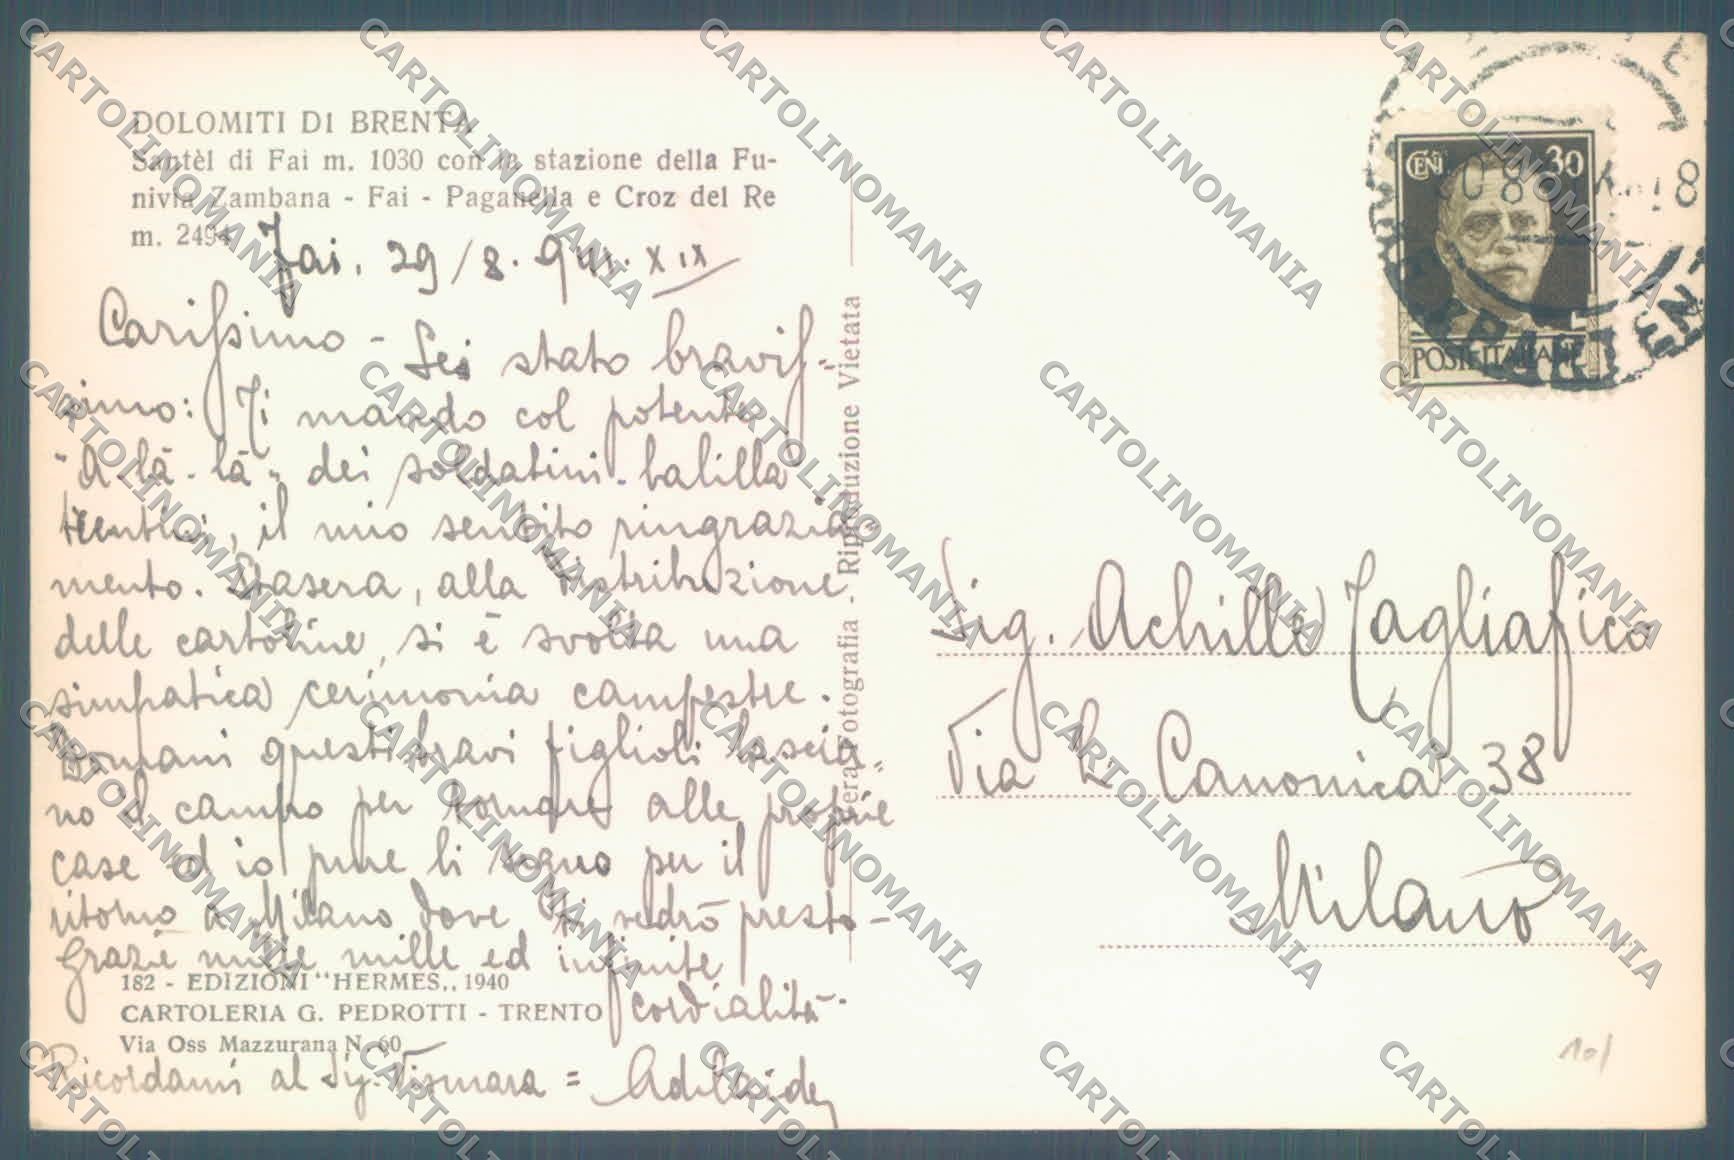 DOLOMITI DI BRENTA
Santèl di Fai m. 1030 con la stazione della Fu-
nivia Zambana - Fai - Paganella e Croz del Re
m. 2494
Fai. 29/8. 941. XIX
Carissimo - Sei stato bravis-
simo: Ti mando col potente
"A-là-là" dei soldatini-balilla
trentini, il mio sentito ringrazia-
mento. Stasera, alla distribuzione
delle cartoline, si è svolta una
simpatica cerimonia campestre.
Domani questi bravi figlioli lascia-
no il campo per tornare alle proprie
case ed io pure li seguo per il
ritorno a Milano dove ti vedrò presto -
Grazie mille mille ed infinite
cordialità.
182 - EDIZIONI "HERMES,, 1940
CARTOLERIA G. PEDROTTI - TRENTO
Via Oss Mazzurana N. 60
Ricordami al Sig. Vismara = Adelaide
Vera Fotografia - Riproduzione Vietata
CENT. 30
POSTE ITALIANE
Sig. Achille Tagliafico
Via L. Canonica 38
Milano
10/
CARTOLINOMANIA